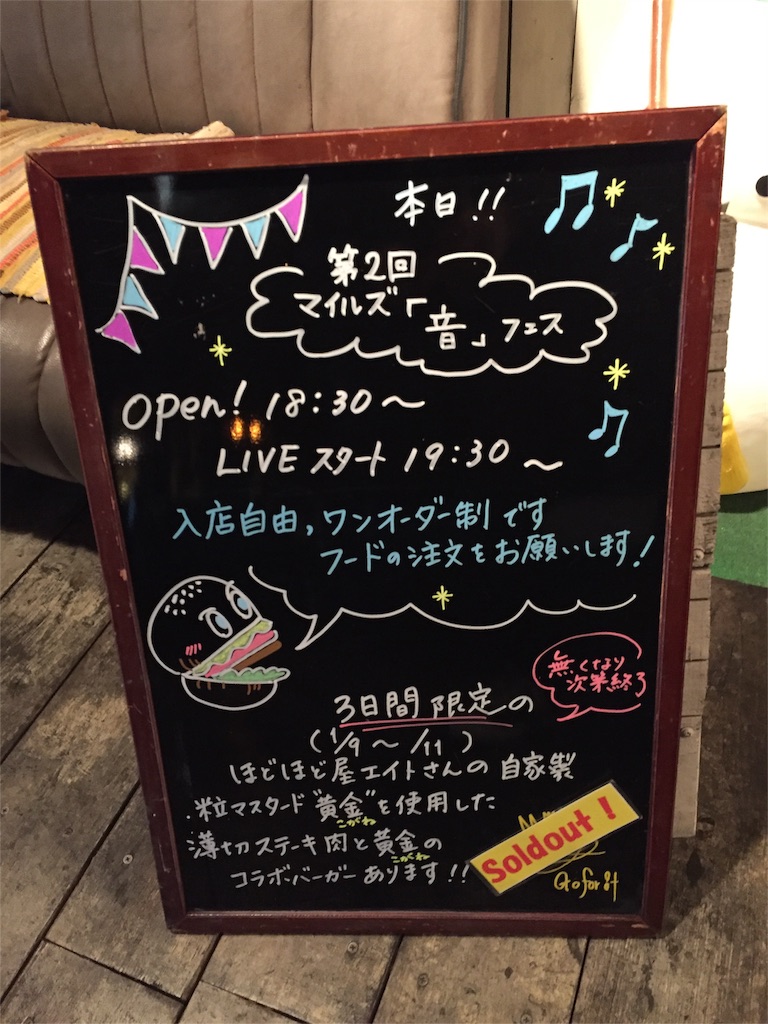 本日!!
第2回
マイルズ「音」フェス
open! 18:30〜
LIVE スタート 19:30〜
入店自由,ワンオーダー制です
フードの注文をお願いします!
無くなり
次第終了
3日間限定の
(1/9〜/11)
ほどほど屋エイトさんの自家製
粒マスタード"黄金"を使用した
こがね
薄切ステーキ肉と黄金の
こがね
コラボバーガーあります!!
Soldout!